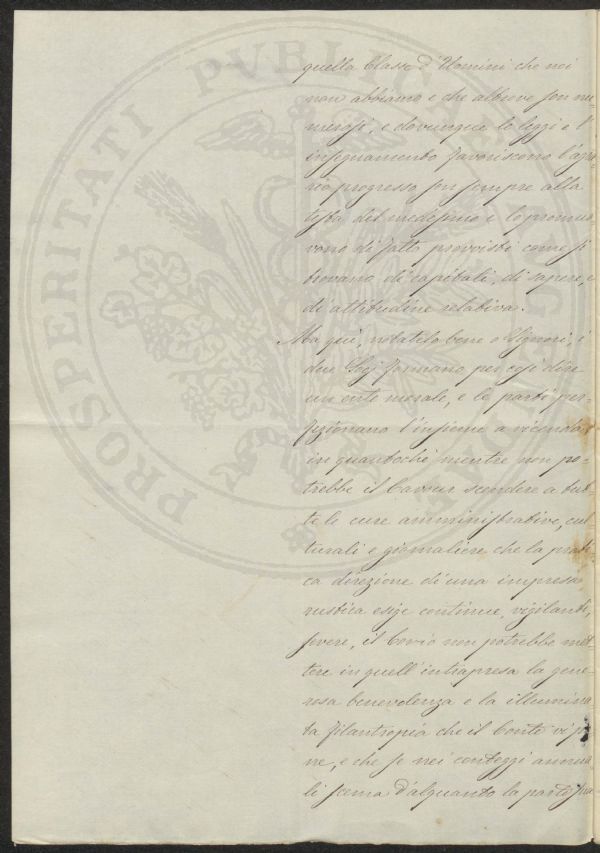 quella Classe d'Uomini che noi
non abbiamo e che altrove son nu-
merosi, e dovunque le leggi e l'
insegnamento favoriscono l'agra-
rio progresso son sempre alla
testa del medesimo e lo promuo-
vono di fatto provvisti come si
trovano, di capitali, di sapere, e
di attitudine relativa.
Ma qui, notatelo bene o Signori, i
due Socj formano per così dire
un ente morale, e le parti per-
fezionano l'insieme a vicenda
in quantochè mentre non po-
trebbe il Cavour scendere a tut-
te le cure amministrative, cul-
turali e giornaliere che la prati-
ca direzione di una impresa
rustica esige continue, vigilanti,
severe, il Corio non potrebbe met-
tere in quell'intrapresa la gene-
rosa benevolenza e la illumina-
ta filantropia che il Conte vi po-
ne, e che se nei conteggi annua-
li scema d'alquanto la parte sua
PROSPERITATI PVBLICAE AVGENDAE